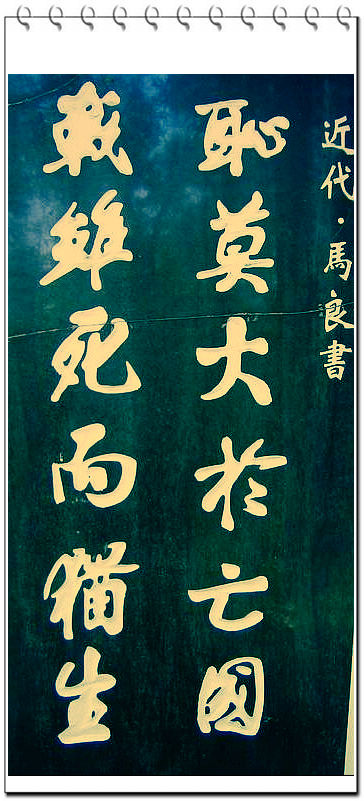 近代·馬良書
恥莫大於亡國
戰雖死而猶生